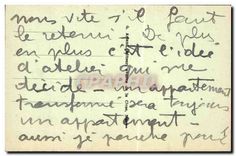 nous vite s'il faut
le retenir - De plus
en plus c'est l'idée
d'atelier qui me
décide un appartement
transformé sera toujours
un appartement -
aussi je penche pour